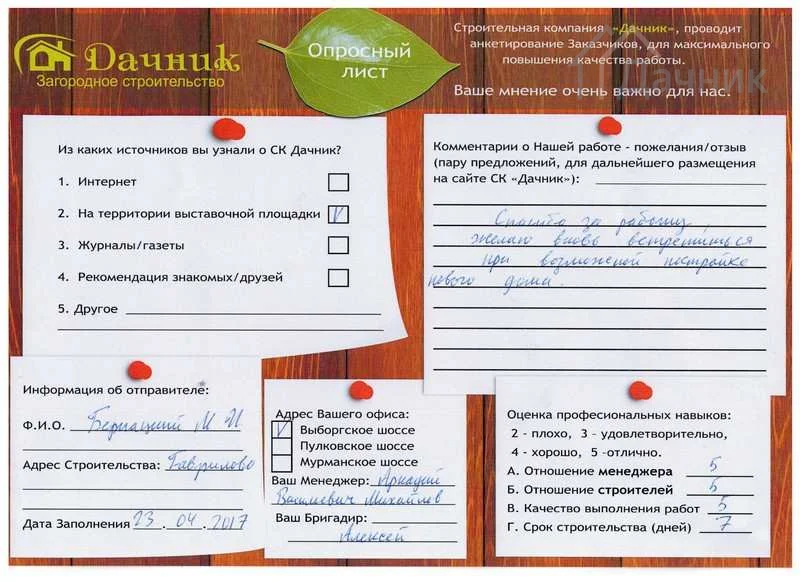 Дачник
Загородное строительство
Опросный
лист
Строительная компания «Дачник», проводит
анкетирование Заказчиков, для максимального
повышения качества работы.
Ваше мнение очень важно для нас.
Дачник
Из каких источников вы узнали о СК Дачник?
1. Интернет
2. На территории выставочной площадки V
3. Журналы/газеты
4. Рекомендация знакомых/друзей
5. Другое
Комментарии о Нашей работе - пожелания/отзыв
(пару предложений, для дальнейшего размещения
на сайте СК «Дачник»):
Спасибо за работу
желаю вновь встретиться
при возможной постройке
нового дома.
Информация об отправителе:
Ф.И.О. М И
Адрес Строительства: Гаврилово
Дата Заполнения 23 . 04 . 2017
Адрес Вашего офиса:
V Выборгское шоссе
Пулковское шоссе
Мурманское шоссе
Ваш Менеджер: Аркадий
Васильевич Михайлов
Ваш Бригадир:
Алексей
Оценка професиональных навыков:
2 - плохо, 3 - удовлетворительно,
4 - хорошо, 5 -отлично.
А. Отношение менеджера 5
Б. Отношение строителей 5
В. Качество выполнения работ 5
Г. Срок строительства (дней) 7